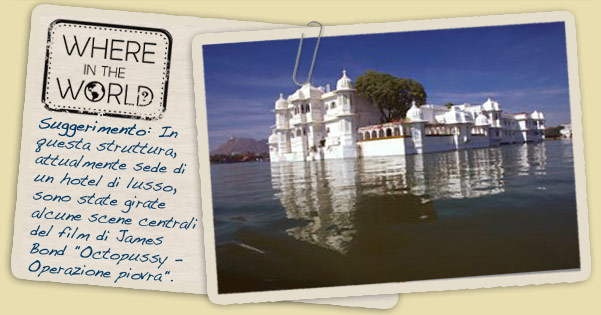 WHERE
IN THE
WORLD?
Suggerimento: In
questa struttura,
attualmente sede di
un hotel di lusso,
sono state girate
alcune scene centrali
del film di James
Bond "Octopussy -
Operazione piovra".